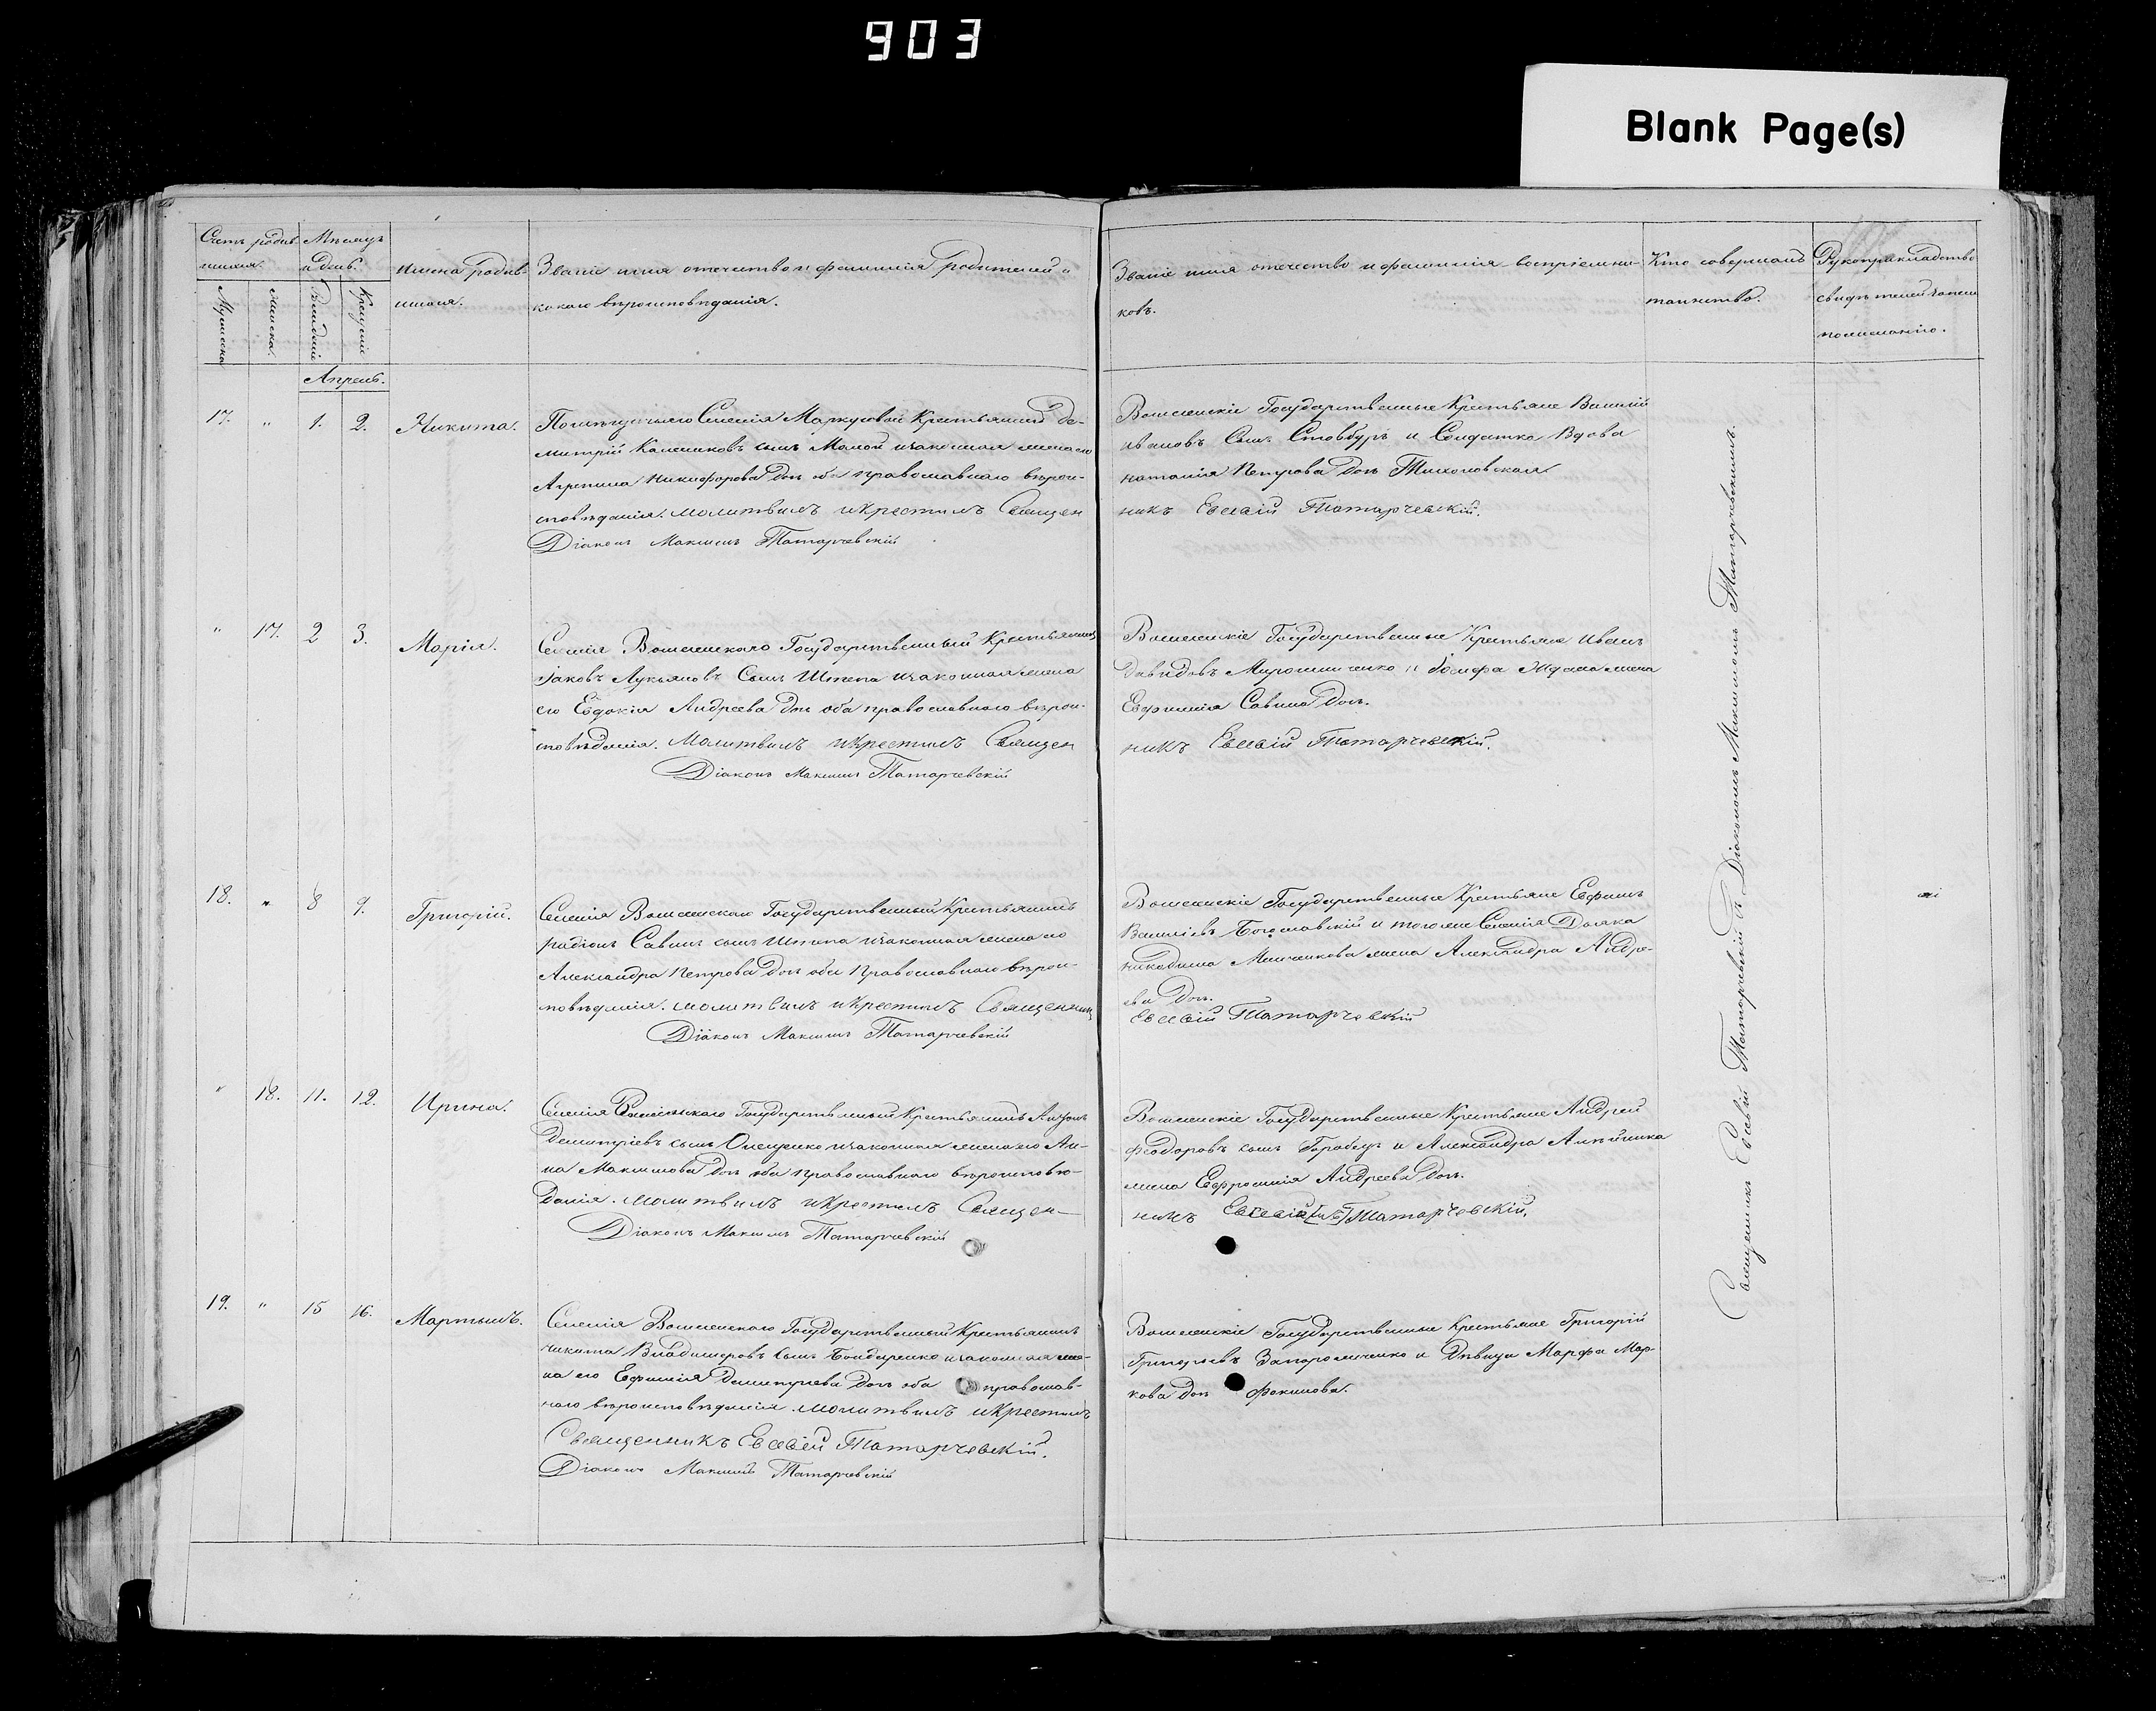 903
Blank Page(s)
Счетъ родив-
шихся.
Мѣсяцъ
и день.
Мужеска
женска.
Рожденія
Крещенія
Имена родив-
шихся.
Званіе имя отечество и фамилія Родителей и
какого вѣроисповѣданія.
Званіе имя отечество и фамилія воспріемни-
ковъ.
Кто совершалъ
таинство.
Рукоприкладство
свидѣтелей записи
по желанію.
Апрель.
17. " 1. 2. Никита.
Крестьянинъ Ди-
митрій сынъ и законная жена его
Агрепина Никифорова дочь оба православнаго вѣрои-
сповѣданія. молитвилъ и крестилъ Священ
Діаконъ Максимъ Татарчевскій
Государственные Крестьяне Василій
Ивановъ Сынъ Стовбуръ и Солдатка Вдова
Наталія Петрова дочь
никъ Евсевій Татарчевскій.
" 17. 2 3. Марія.
Селенія Государственный Крестьянинъ
Іаковъ Лукьяновъ Сынъ Штепа и законная жена
его Евдокія Андреева дочь оба православнаго вѣрои-
сповѣданія. Молитвилъ и крестилъ Священ
Діаконъ Максимъ Татарчевскій
Государственные Крестьяне Иванъ
Давидовъ Мирошниченко и жена
Евфимія Савина дочь.
никъ Евсевій Татарчевскій.
18. " 8 9. Григорій.
Селенія Государственный Крестьянинъ
Родіонъ Савинъ сынъ Штепа и законная жена его
Александра Петрова дочь оба Православнаго вѣрои-
сповѣданія. молитвилъ и крестилъ Священникъ
Діаконъ Максимъ Татарчевскій
Государственные Крестьяне Ефимъ
Василіевъ Богуславскій и того же Селенія Дьяка
Никодима жена Александра Андре-
ева дочь.
Евсевій Татарчевскій
" 18. 11. 12. Ирина.
Селенія Государственный Крестьянинъ
Димитріевъ сынъ Онищенко и законная жена его Ан-
на Максимова дочь оба православнаго вѣроисповѣ-
данія. молитвилъ и крестилъ Священ-
Діаконъ Максимъ Татарчевскій
Государственные Крестьяне Андрей
Феодоровъ сынъ Горобецъ и Александра
жена Евфросинія Андреева дочь.
никъ Евсевій Татарчевскій.
19. " 15 16. Мартынъ.
Селенія Государственный Крестьянинъ
Никита Владимеровъ сынъ Бондаренко и законная же-
на его Евфимія Димитріева дочь оба православ-
наго вѣроисповѣданія. молитвилъ и крестилъ
Священникъ Евсевій Татарчевскій.
Діаконъ Максимъ Татарчевскій
Государственные Крестьяне Григорій
Григорьевъ Запорожченко и Дѣвица Марфа Мар-
кова дочь Фокинова.
Священникъ Евсевій Татарчевскій съ Діакономъ Максимомъ Татарчевскимъ.